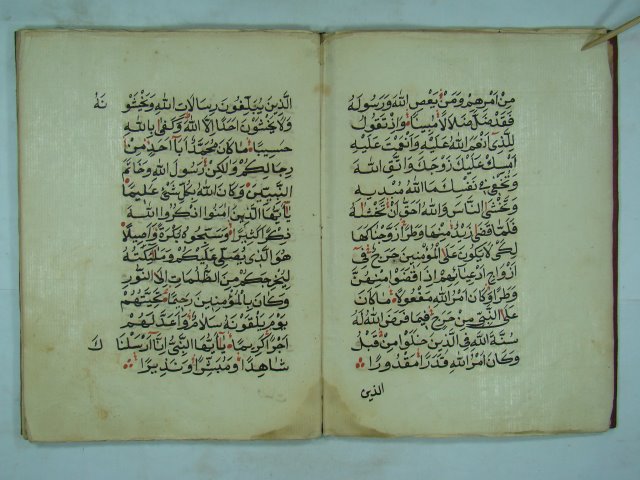 مِنْ اَمْرِهِمْ وَمَنْ يَعْصِ اللهَ وَرَسُولَهُ
فَقَدْ ضَلَّ ضَلَالًا مُبِينًا وَاِذْ تَقُولُ
لِلَّذِي اَنْعَمَ اللهُ عَلَيْهِ وَاَنْعَمْتَ عَلَيْهِ
اَمْسِكْ عَلَيْكَ زَوْجَكَ وَاتَّقِ اللهَ
وَتُخْفِي فِي نَفْسِكَ مَا اللهُ مُبْدِيهِ
وَتَخْشَى النَّاسَ وَاللهُ اَحَقُّ اَنْ تَخْشٰهُ
فَلَمَّا قَضٰى زَيْدٌ مِنْهَا وَطَرًا زَوَّجْنَاكَهَا
لِكَيْ لَا يَكُونَ عَلَى الْمُؤْمِنِينَ حَرَجٌ فِي
اَزْوَاجِ اَدْعِيَائِهِمْ اِذَا قَضَوْا مِنْهُنَّ
وَطَرًا وَكَانَ اَمْرُ اللهِ مَفْعُولًا مَا كَانَ
عَلَى النَّبِيِّ مِنْ حَرَجٍ فِيمَا فَرَضَ اللهُ لَهُ
سُنَّةَ اللهِ فِي الَّذِينَ خَلَوْا مِنْ قَبْلُ
وَكَانَ اَمْرُ اللهِ قَدَرًا مَقْدُورًا
الذين
الَّذِينَ يُبَلِّغُونَ رِسَالَاتِ اللهِ وَيَخْشَوْ نَهُ
وَلَا يَخْشَوْنَ اَحَدًا اِلَّا اللهَ وَكَفٰى بِاللهِ
حَسِيبًا مَا كَانَ مُحَمَّدٌ اَبَا اَحَدٍ مِنْ
رِجَالِكُمْ وَلٰكِنْ رَسُولَ اللهِ وَخَاتَمَ
النَّبِيِّينَ وَكَانَ اللهُ بِكُلِّ شَيْءٍ عَلِيمًا
يَا اَيُّهَا الَّذِينَ اٰمَنُوا اذْكُرُوا اللهَ
ذِكْرًا كَثِيرًا وَسَبِّحُوهُ بُكْرَةً وَاَصِيلًا
هُوَ الَّذِي يُصَلِّي عَلَيْكُمْ وَمَلٰئِكَتُهُ
لِيُخْرِجَكُمْ مِنَ الظُّلُمَاتِ اِلَى النُّورِ
وَكَانَ بِالْمُؤْمِنِينَ رَحِيمًا تَحِيَّتُهُمْ
يَوْمَ يَلْقَوْنَهُ سَلَامٌ وَاَعَدَّ لَهُمْ
اَجْرًا كَرِيمًا يَا اَيُّهَا النَّبِيُّ اِنَّا اَرْسَلْنَا كَ
شَاهِدًا وَمُبَشِّرًا وَنَذِيرًا